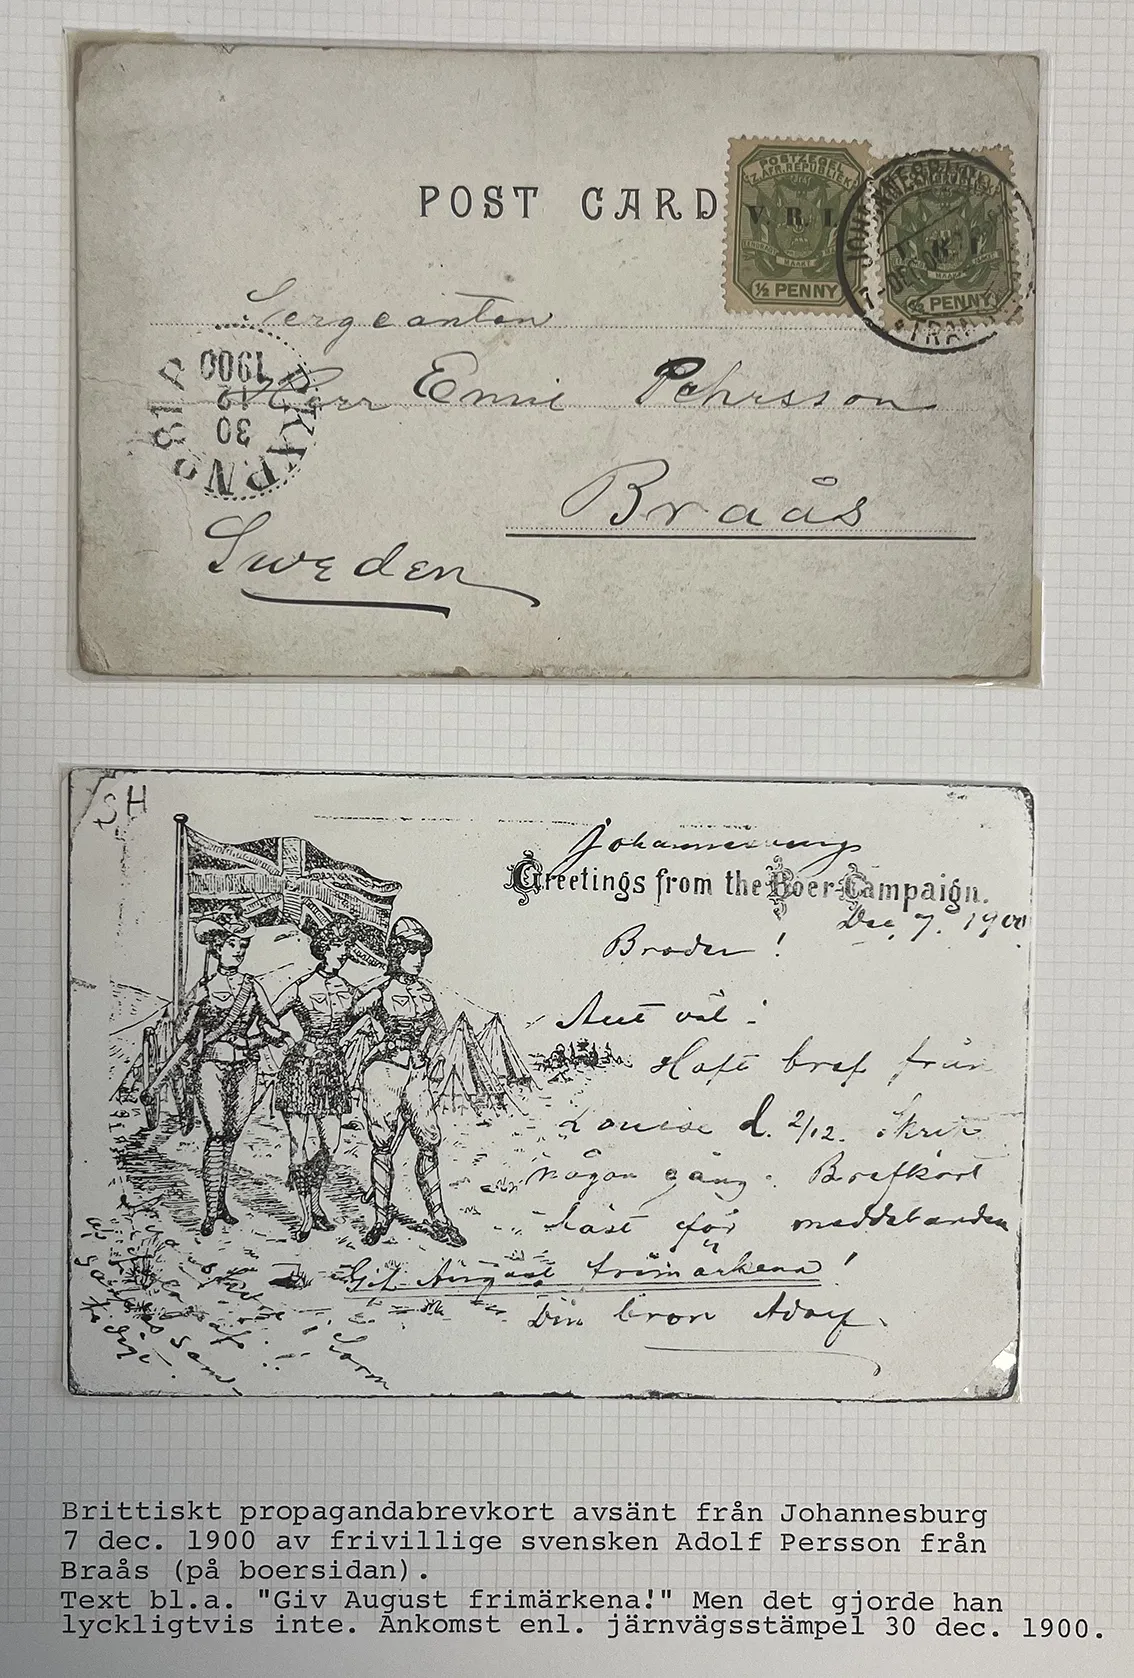 POST CARD
POSTZEGEL
Z. AFR. REPUBLIEK
V. R. I.
EENDRAGT MAAKT MAGT
½ PENNY
POSTZEGEL
Z. AFR. REPUBLIEK
V. R. I.
MAAKT
½ PENNY
JOHANNESBURG
7-DEC 00
Sergeanten
Herr Emil Pehrsson
Braås
Sweden
PKXP.No 81
30
12
1900
SH
Johannesburg
Greetings from the Boer Campaign.
Dec. 7. 1900
Broder!
Allt väl.
Haft bref från
Louise d. 2/12. Skrif
någon gång. Brefkort
bäst för meddelanden
Gif August frimärkena!
Din bror Adolf.
Brittiskt propagandabrevkort avsänt från Johannesburg
7 dec. 1900 av frivillige svensken Adolf Persson från
Braås (på boersidan).
Text bl.a. "Giv August frimärkena!" Men det gjorde han
lyckligtvis inte. Ankomst enl. järnvägsstämpel 30 dec. 1900.